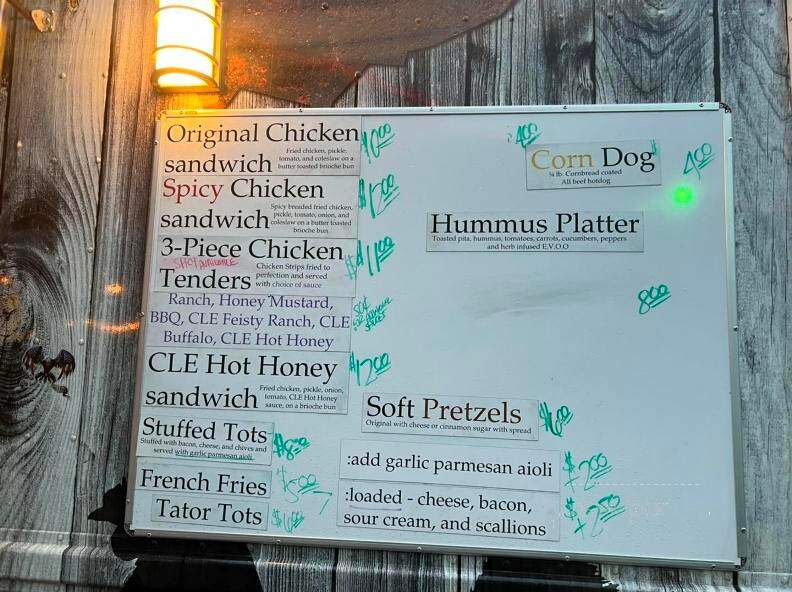 Original Chicken
sandwich
Fried chicken, pickle,
tomato, and coleslaw on a
butter toasted brioche bun
Spicy Chicken $12.00
sandwich
Spicy breaded fried chicken,
pickle, tomato, onion, and
coleslaw on a butter toasted
brioche bun
3-Piece Chicken $11.00
SPICY AVAILABLE
Tenders
Chicken Strips fried to
perfection and served
with choice of sauce
Ranch, Honey Mustard,
BBQ, CLE Feisty Ranch, CLE
Buffalo, CLE Hot Honey
CLE Hot Honey $12.00
sandwich
Fried chicken, pickle, onion,
tomato, CLE Hot Honey
sauce, on a brioche bun
Stuffed Tots $8.00
Stuffed with bacon, cheese, and chives and
served with garlic parmesan aioli
French Fries $5.00
Tator Tots $6.00
4.00
Corn Dog 4.00
¼ lb. Cornbread coated
All beef hotdog
Hummus Platter
Toasted pita, hummus, tomatoes, carrots, cucumbers, peppers
and herb infused E.V.O.O
8.00
Soft Pretzels $6.00
Original with cheese or cinnamon sugar with spread
:add garlic parmesan aioli $+2.00
:loaded - cheese, bacon, $+2.50
sour cream, and scallions